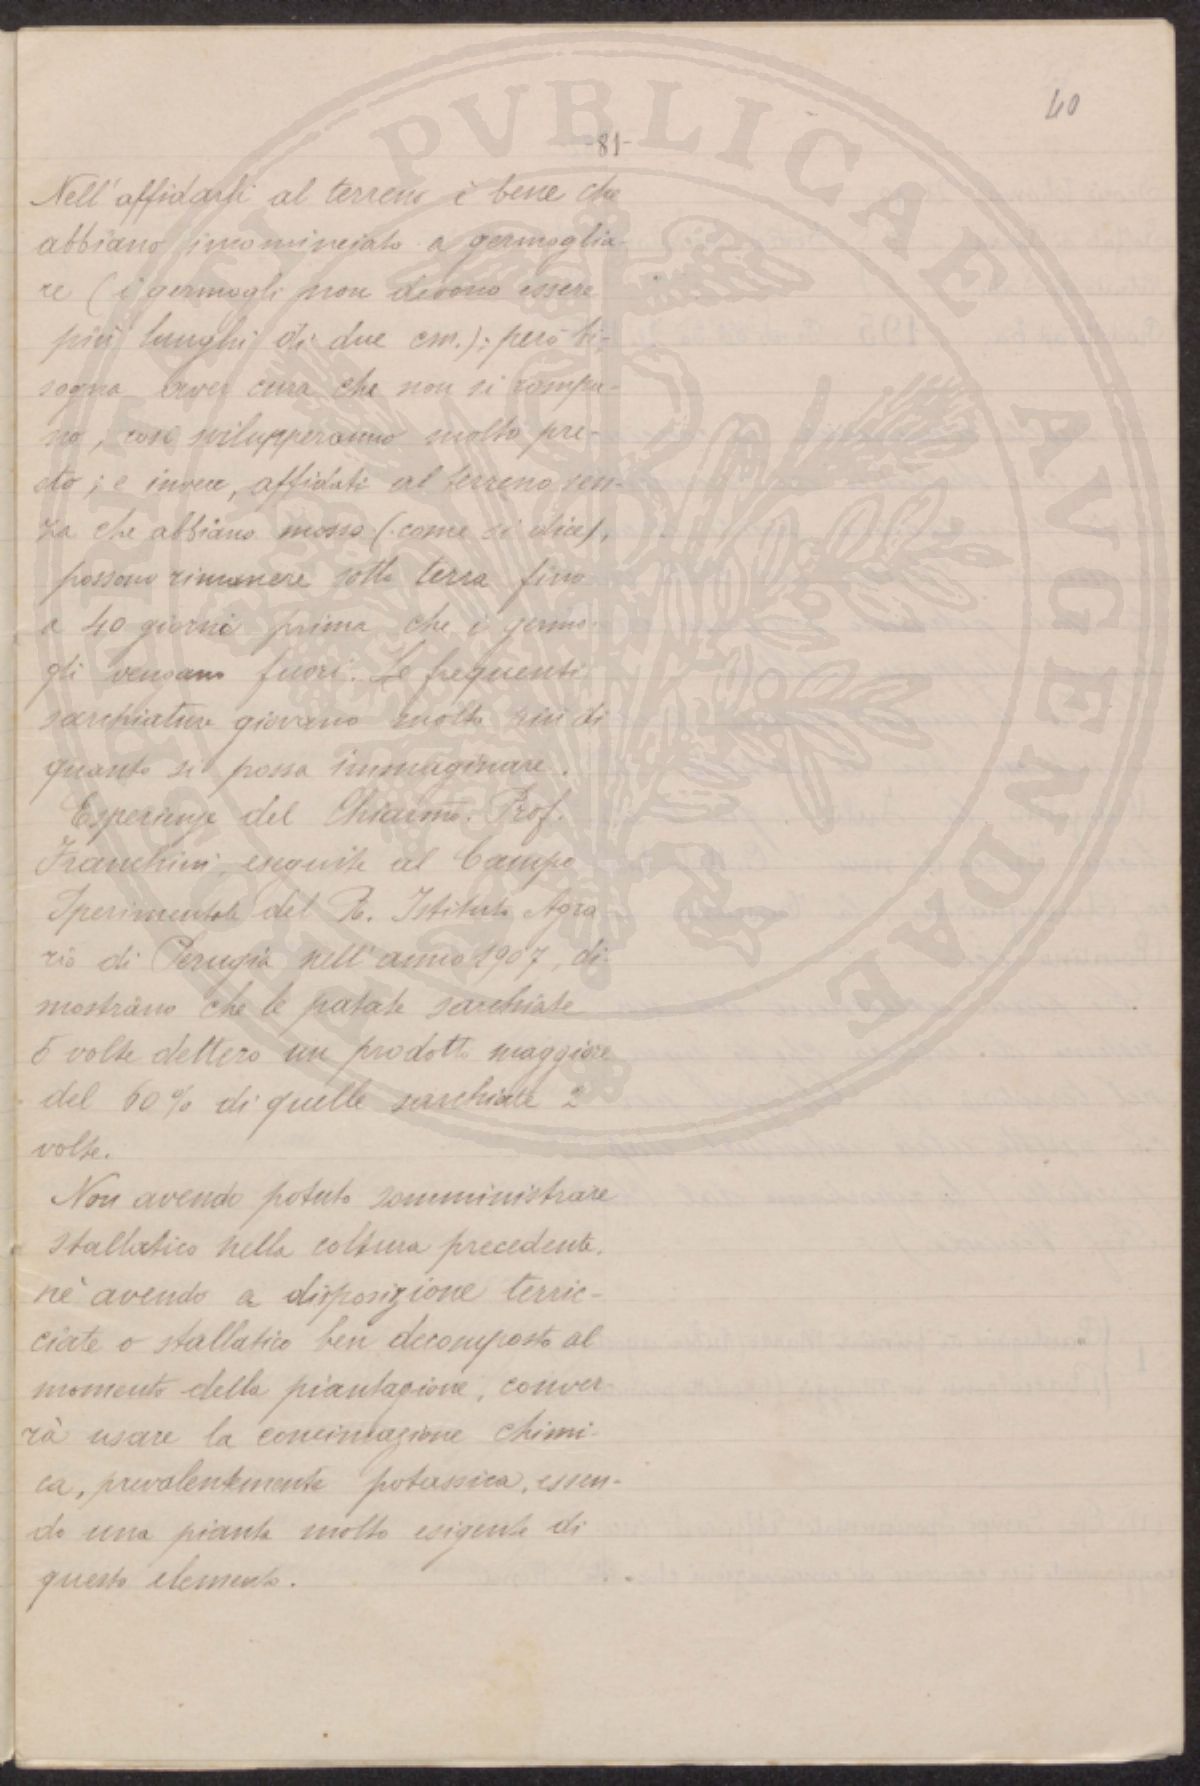 40
-81-
Nell'affidarli al terreno è bene che
abbiano incominciato a germoglia-
re (i germogli non devono essere
più lunghi di due cm.); però bi-
sogna aver cura che non si rompa-
no, così svilupperanno molto pre-
sto; e invece, affidati al terreno sen-
za che abbiano mosso (come si dice),
possono rimanere sotto terra fino
a 40 giorni prima che i germo-
gli vengano fuori. Le frequenti
sarchiature giovano molto più di
quanto si possa immaginare.
Esperienze del Chiarmo. Prof.
Franchini, eseguite al Campo
Sperimentale del R. Istituto Agra
rio di Perugia nell'anno 1907, di-
mostrano che le patate sarchiate
5 volte dettero un prodotto maggiore
del 60% di quelle sarchiate 2
volte.
Non avendo potuto somministrare
stallatico nella coltura precedente,
nè avendo a disposizione terric-
ciate o stallatico ben decomposto al
momento della piantagione, conver-
rà usare la concimazione chimi-
ca, prevalentemente potassica, essen-
do una pianta molto esigente di
questo elemento.
PVBLICAE AVGENDAE